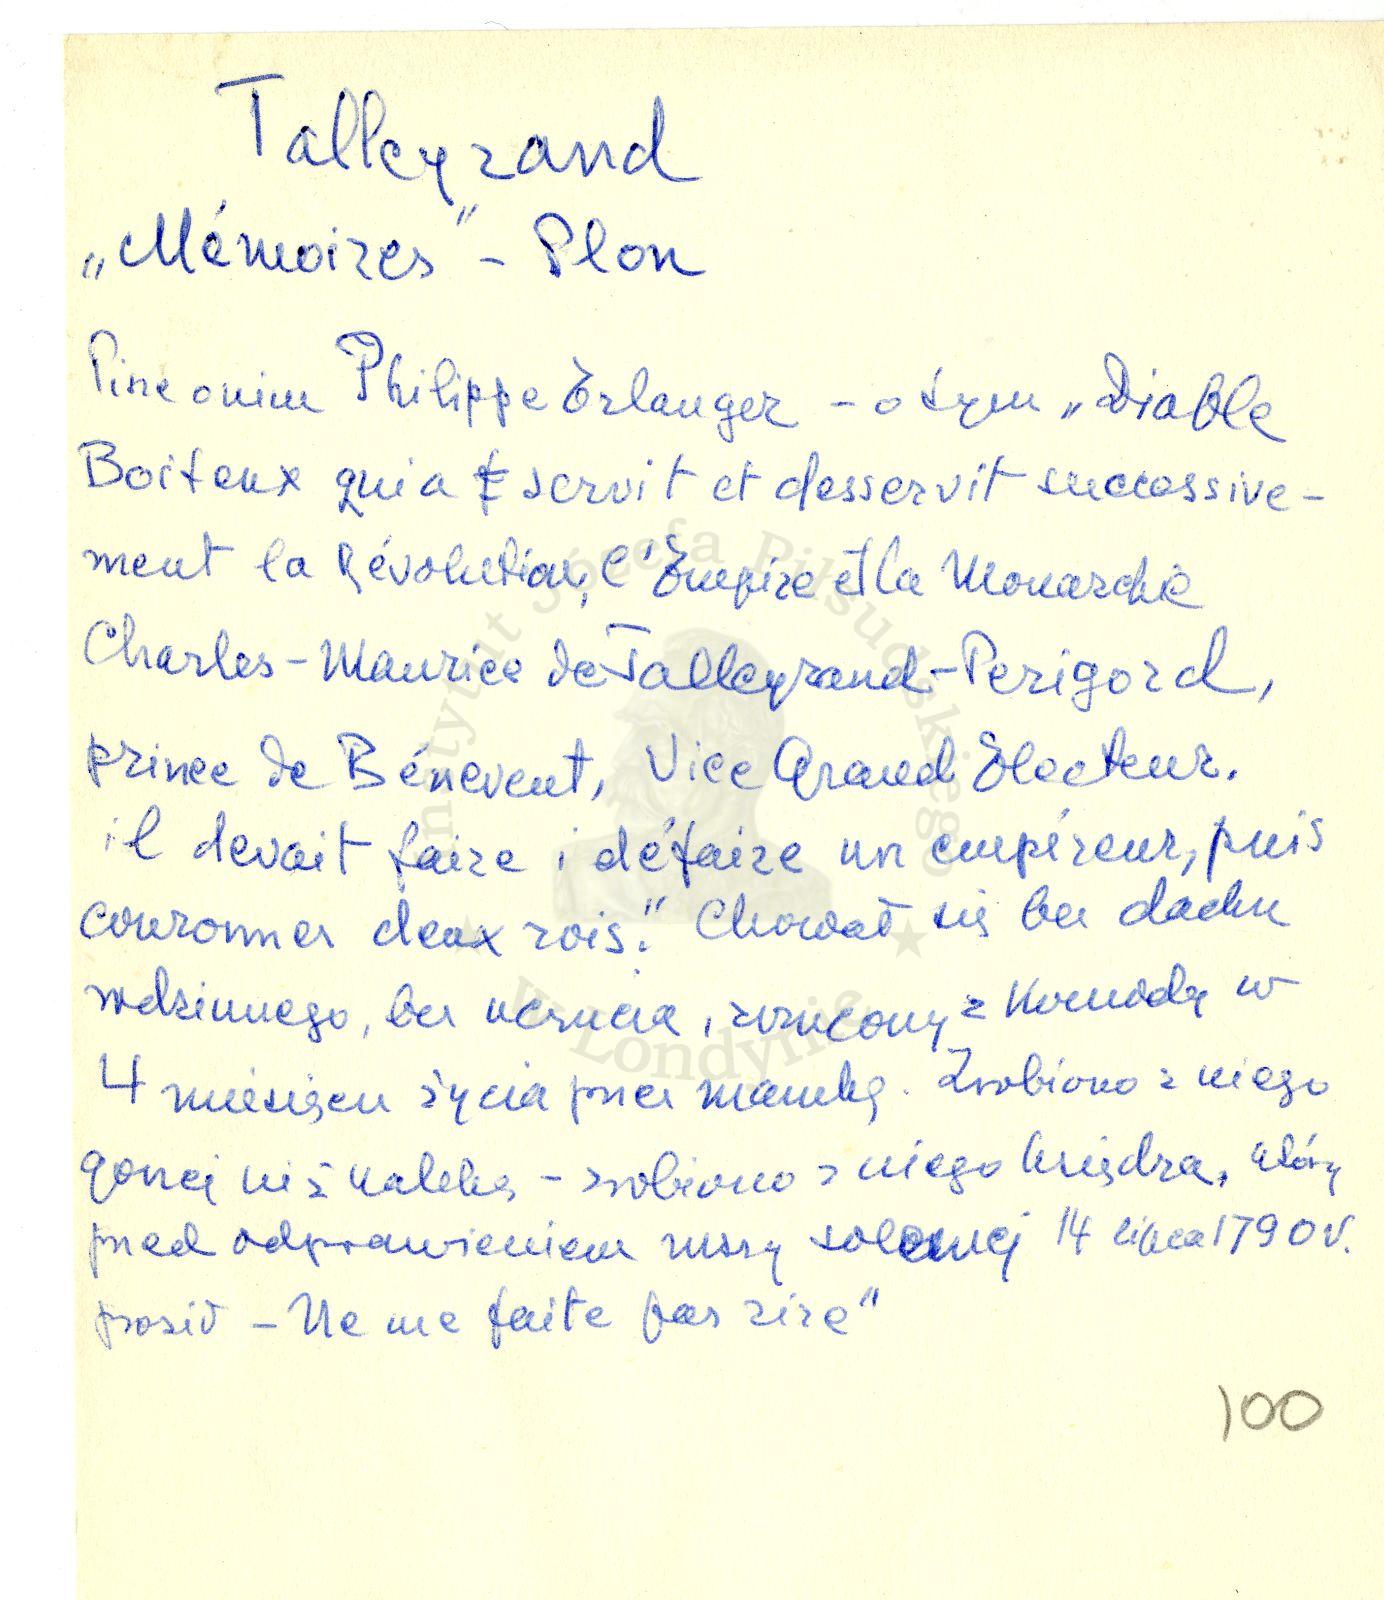 Talleyrand
„Mémoires” – Plon
Pisze o nim Philippe Erlanger – o tym „Diable
Boiteux qui a servit et desservit successive-
ment la Révolution, l'Empire et la Monarchie
Charles-Maurice de Talleyrand-Perigord,
prince de Bénévent, Vice Grand Electeur.
il devait faire i défaire un empéreur, puis
couronner deux rois." Chował się bez dachu
rodzinnego, bez uczucia, zrzucony z komody w
4 miesiącu życia przez mamkę. Zrobiono z niego
gorzej niż kalekę – zrobiono z niego księdza, który
przed odprawieniem mszy solennej 14 lipca 1790 r.
prosił – Ne me faite pas rire"
100
Instytut Józefa Piłsudskiego
w Londynie